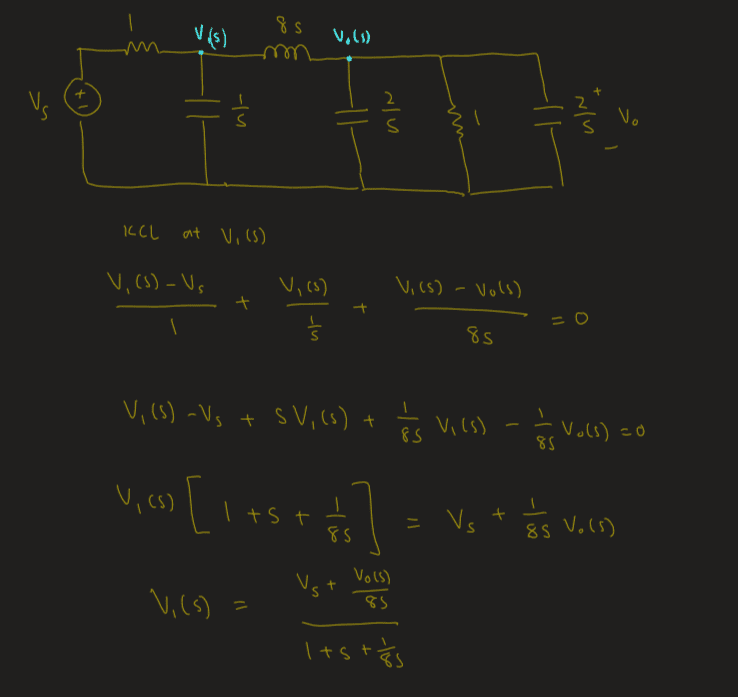 1 V₁(s) 8s V₀(s)
Vs + − 1/s 2/s 1 2/s + V₀ −
KCL at V₁(s)
(V₁(s) − Vs)/1 + V₁(s)/(1/s) + (V₁(s) − V₀(s))/8s = 0
V₁(s) − Vs + sV₁(s) + 1/8s V₁(s) − 1/8s V₀(s) = 0
V₁(s) [1 + s + 1/8s] = Vs + 1/8s V₀(s)
V₁(s) = (Vs + V₀(s)/8s)/(1 + s + 1/8s)